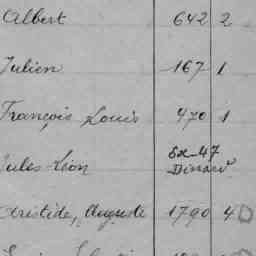 Albert 642 2
Julien 167 1
François Louis 470 1
Jules Léon Ex-47
Dinard
Aristide, Auguste 1790 4